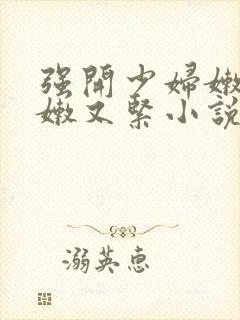 强開少婦嫩
嫩又緊小說
溺英惠